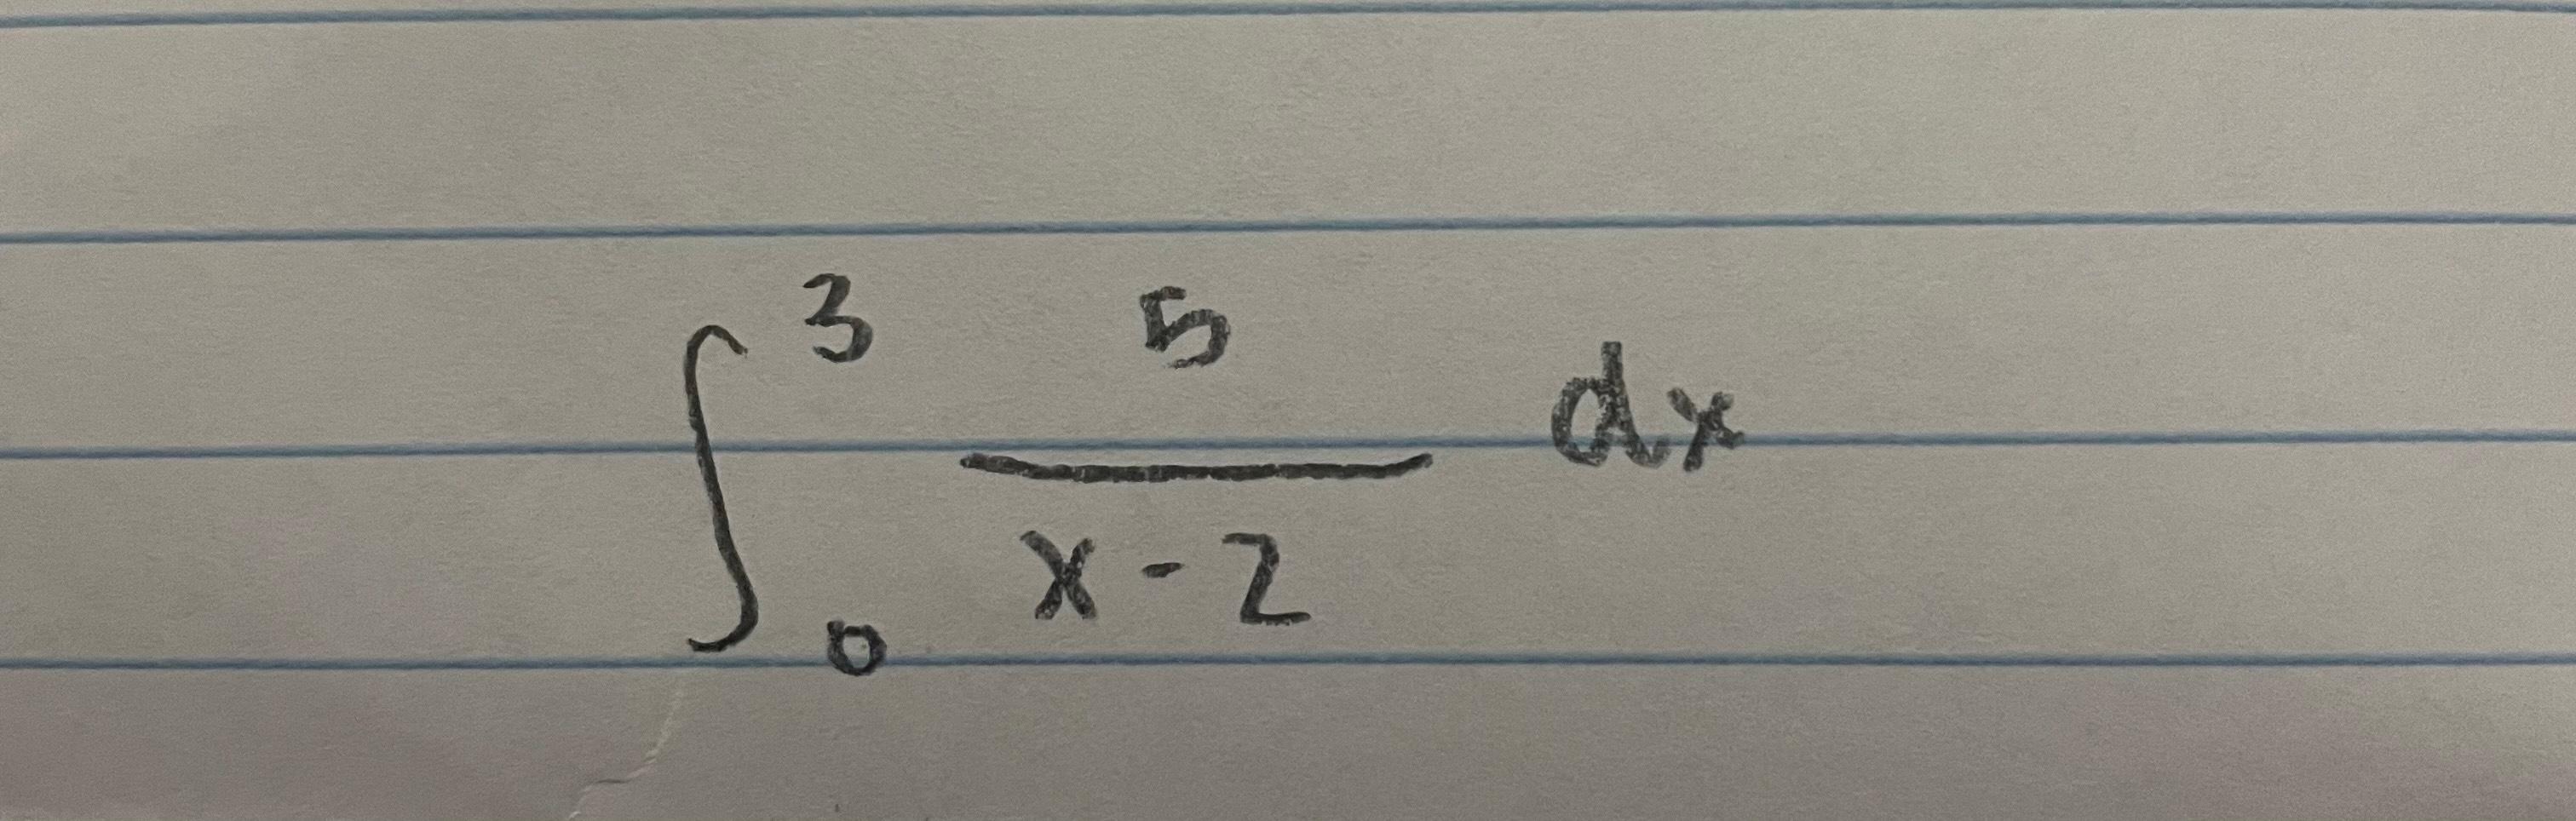 ∫₀³ 5/(x - 2) dx